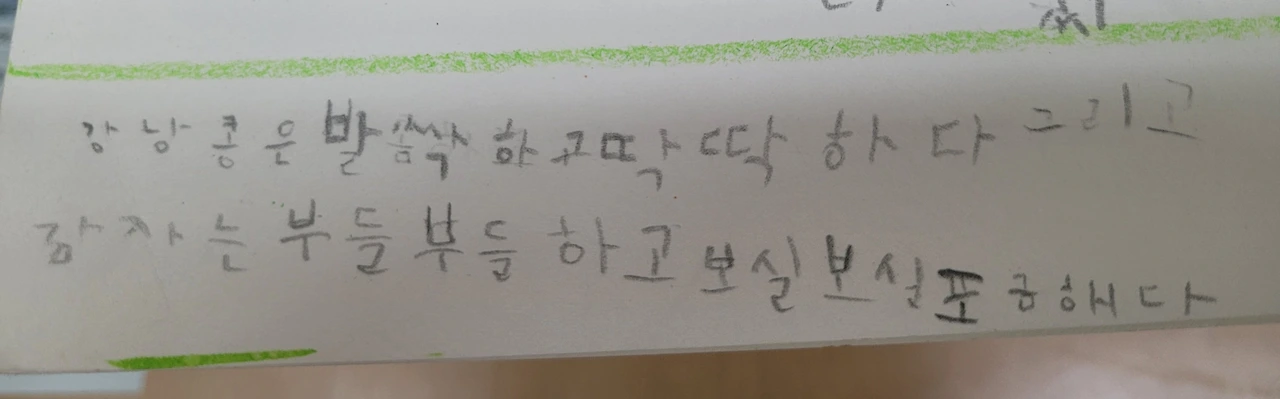 강낭콩은 발쏨싹 하고딱딱 하다 그리고
감자는 부들부들하고 보실보실포금해다